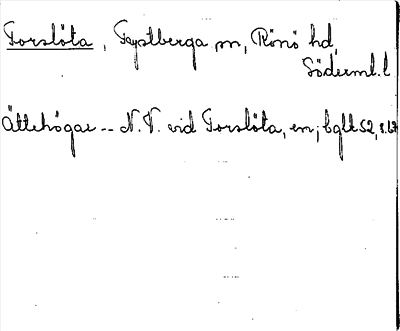 Torslöta, Tystberga sn, Rönö hd,
Söderml. l
Ättehögar -- N.V. vid Torslöta, en; bglt 52, s. 67